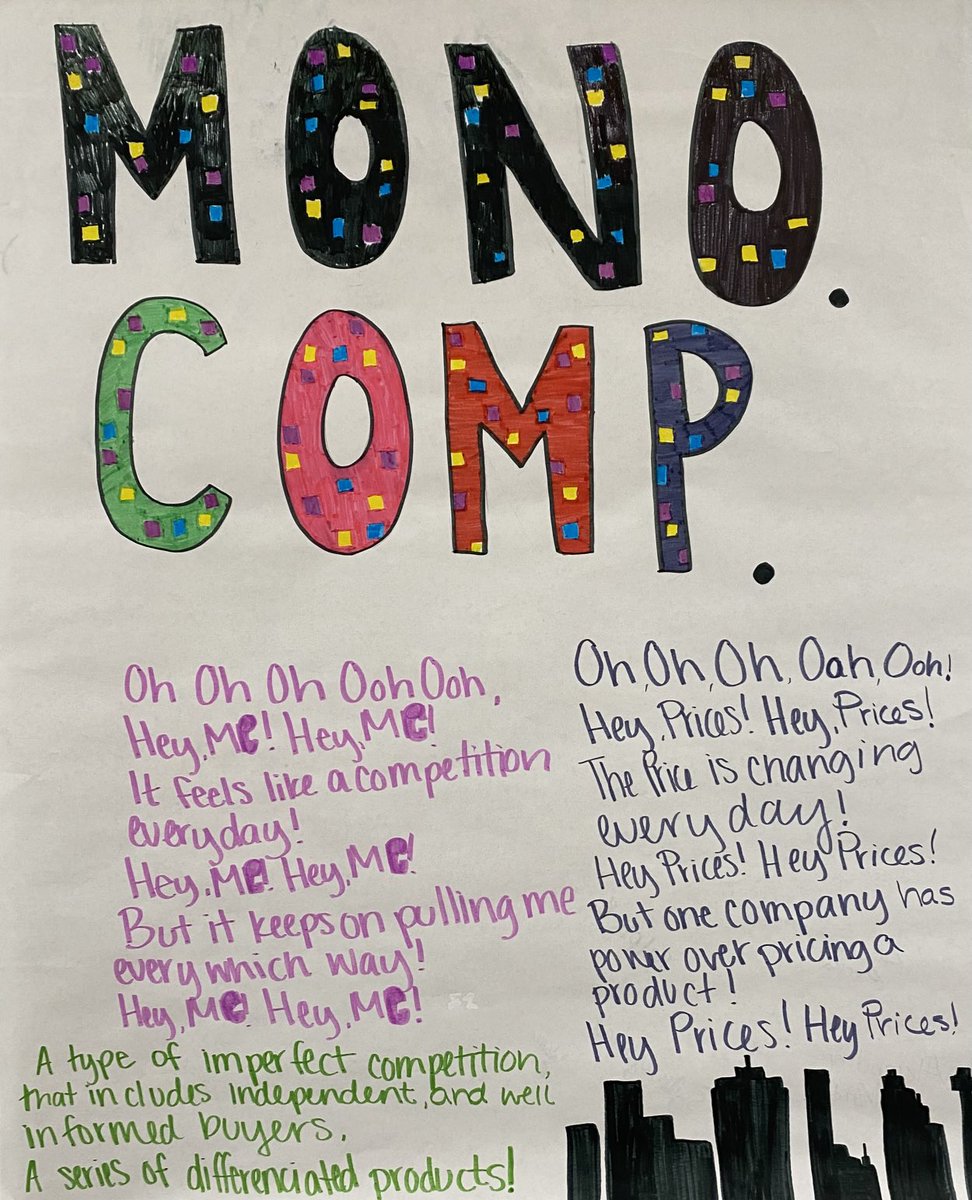 MONO.
COMP.
Oh Oh Oh Ooh Ooh,
Hey, MC! Hey, MC!
It feels like a competition
everyday!
Hey, MC! Hey, MC!
But it keeps on pulling me
every which way!
Hey, MC! Hey, MC!
A type of imperfect competition,
that includes independent, and well
informed buyers.
A series of differenciated products!
Oh, Oh, Oh, Oah, Ooh!
Hey, Prices! Hey, Prices!
The Price is changing
every day!
Hey Prices! Hey Prices!
But one company has
power over pricing a
product!
Hey Prices! Hey Prices!